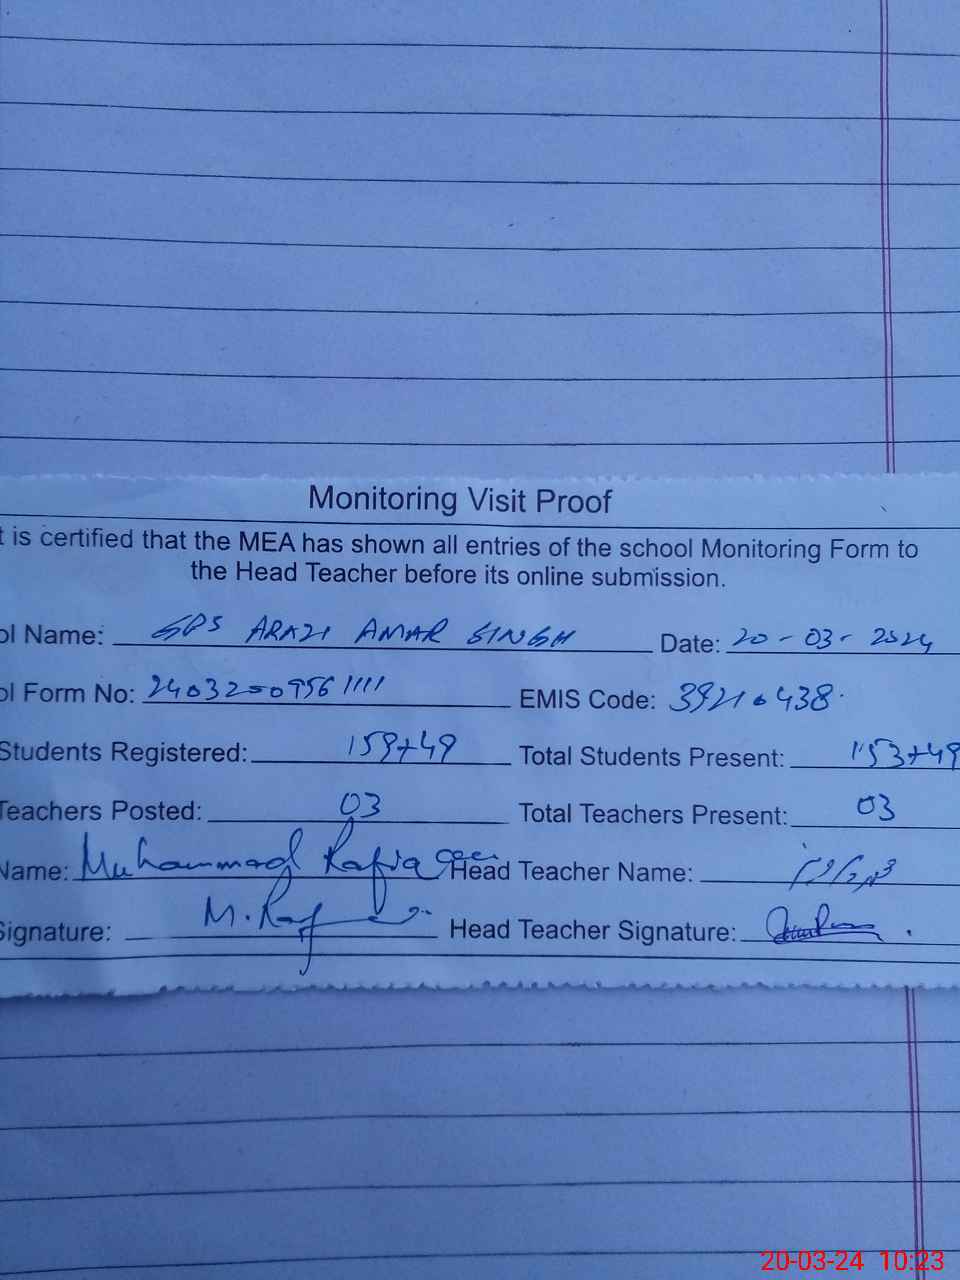 Monitoring Visit Proof
t is certified that the MEA has shown all entries of the school Monitoring Form to
the Head Teacher before its online submission.
ol Name: GPS ARAZI AMAR SINGH Date: 20-03-2024
ol Form No: 24032009561111 EMIS Code: 39210438
Students Registered: 159+49 Total Students Present: 153+49
Teachers Posted: 03 Total Teachers Present: 03
Name: Muhammad Rafia Head Teacher Name:
Signature: M. Raf Head Teacher Signature:
20-03-24 10:23